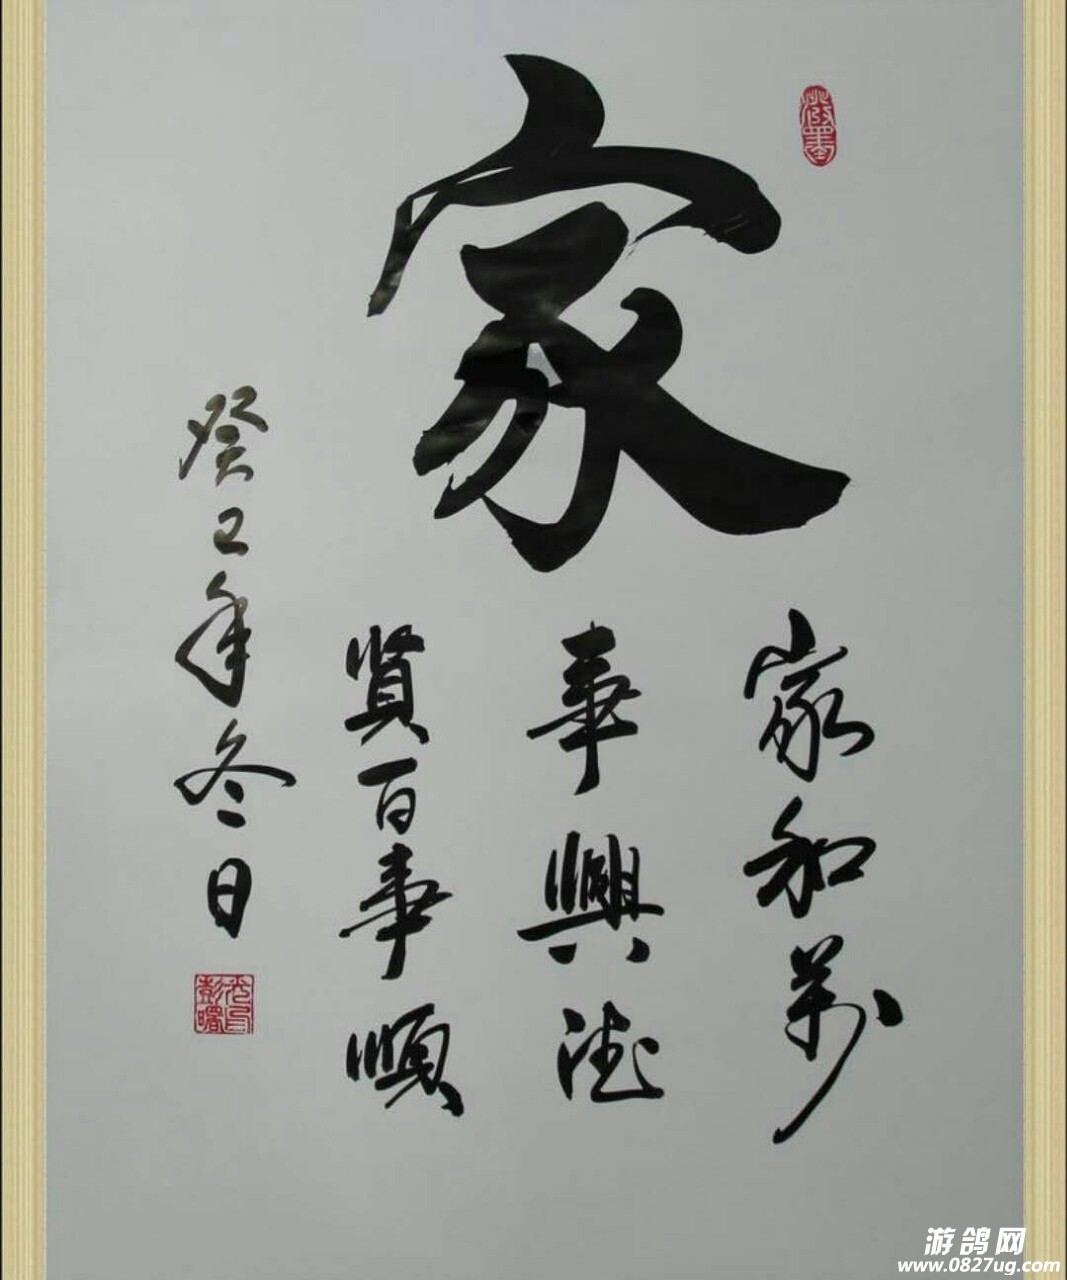 家
家和萬
事興德
賢百事順
癸巳年冬日
游鸽网
www.0827ug.com